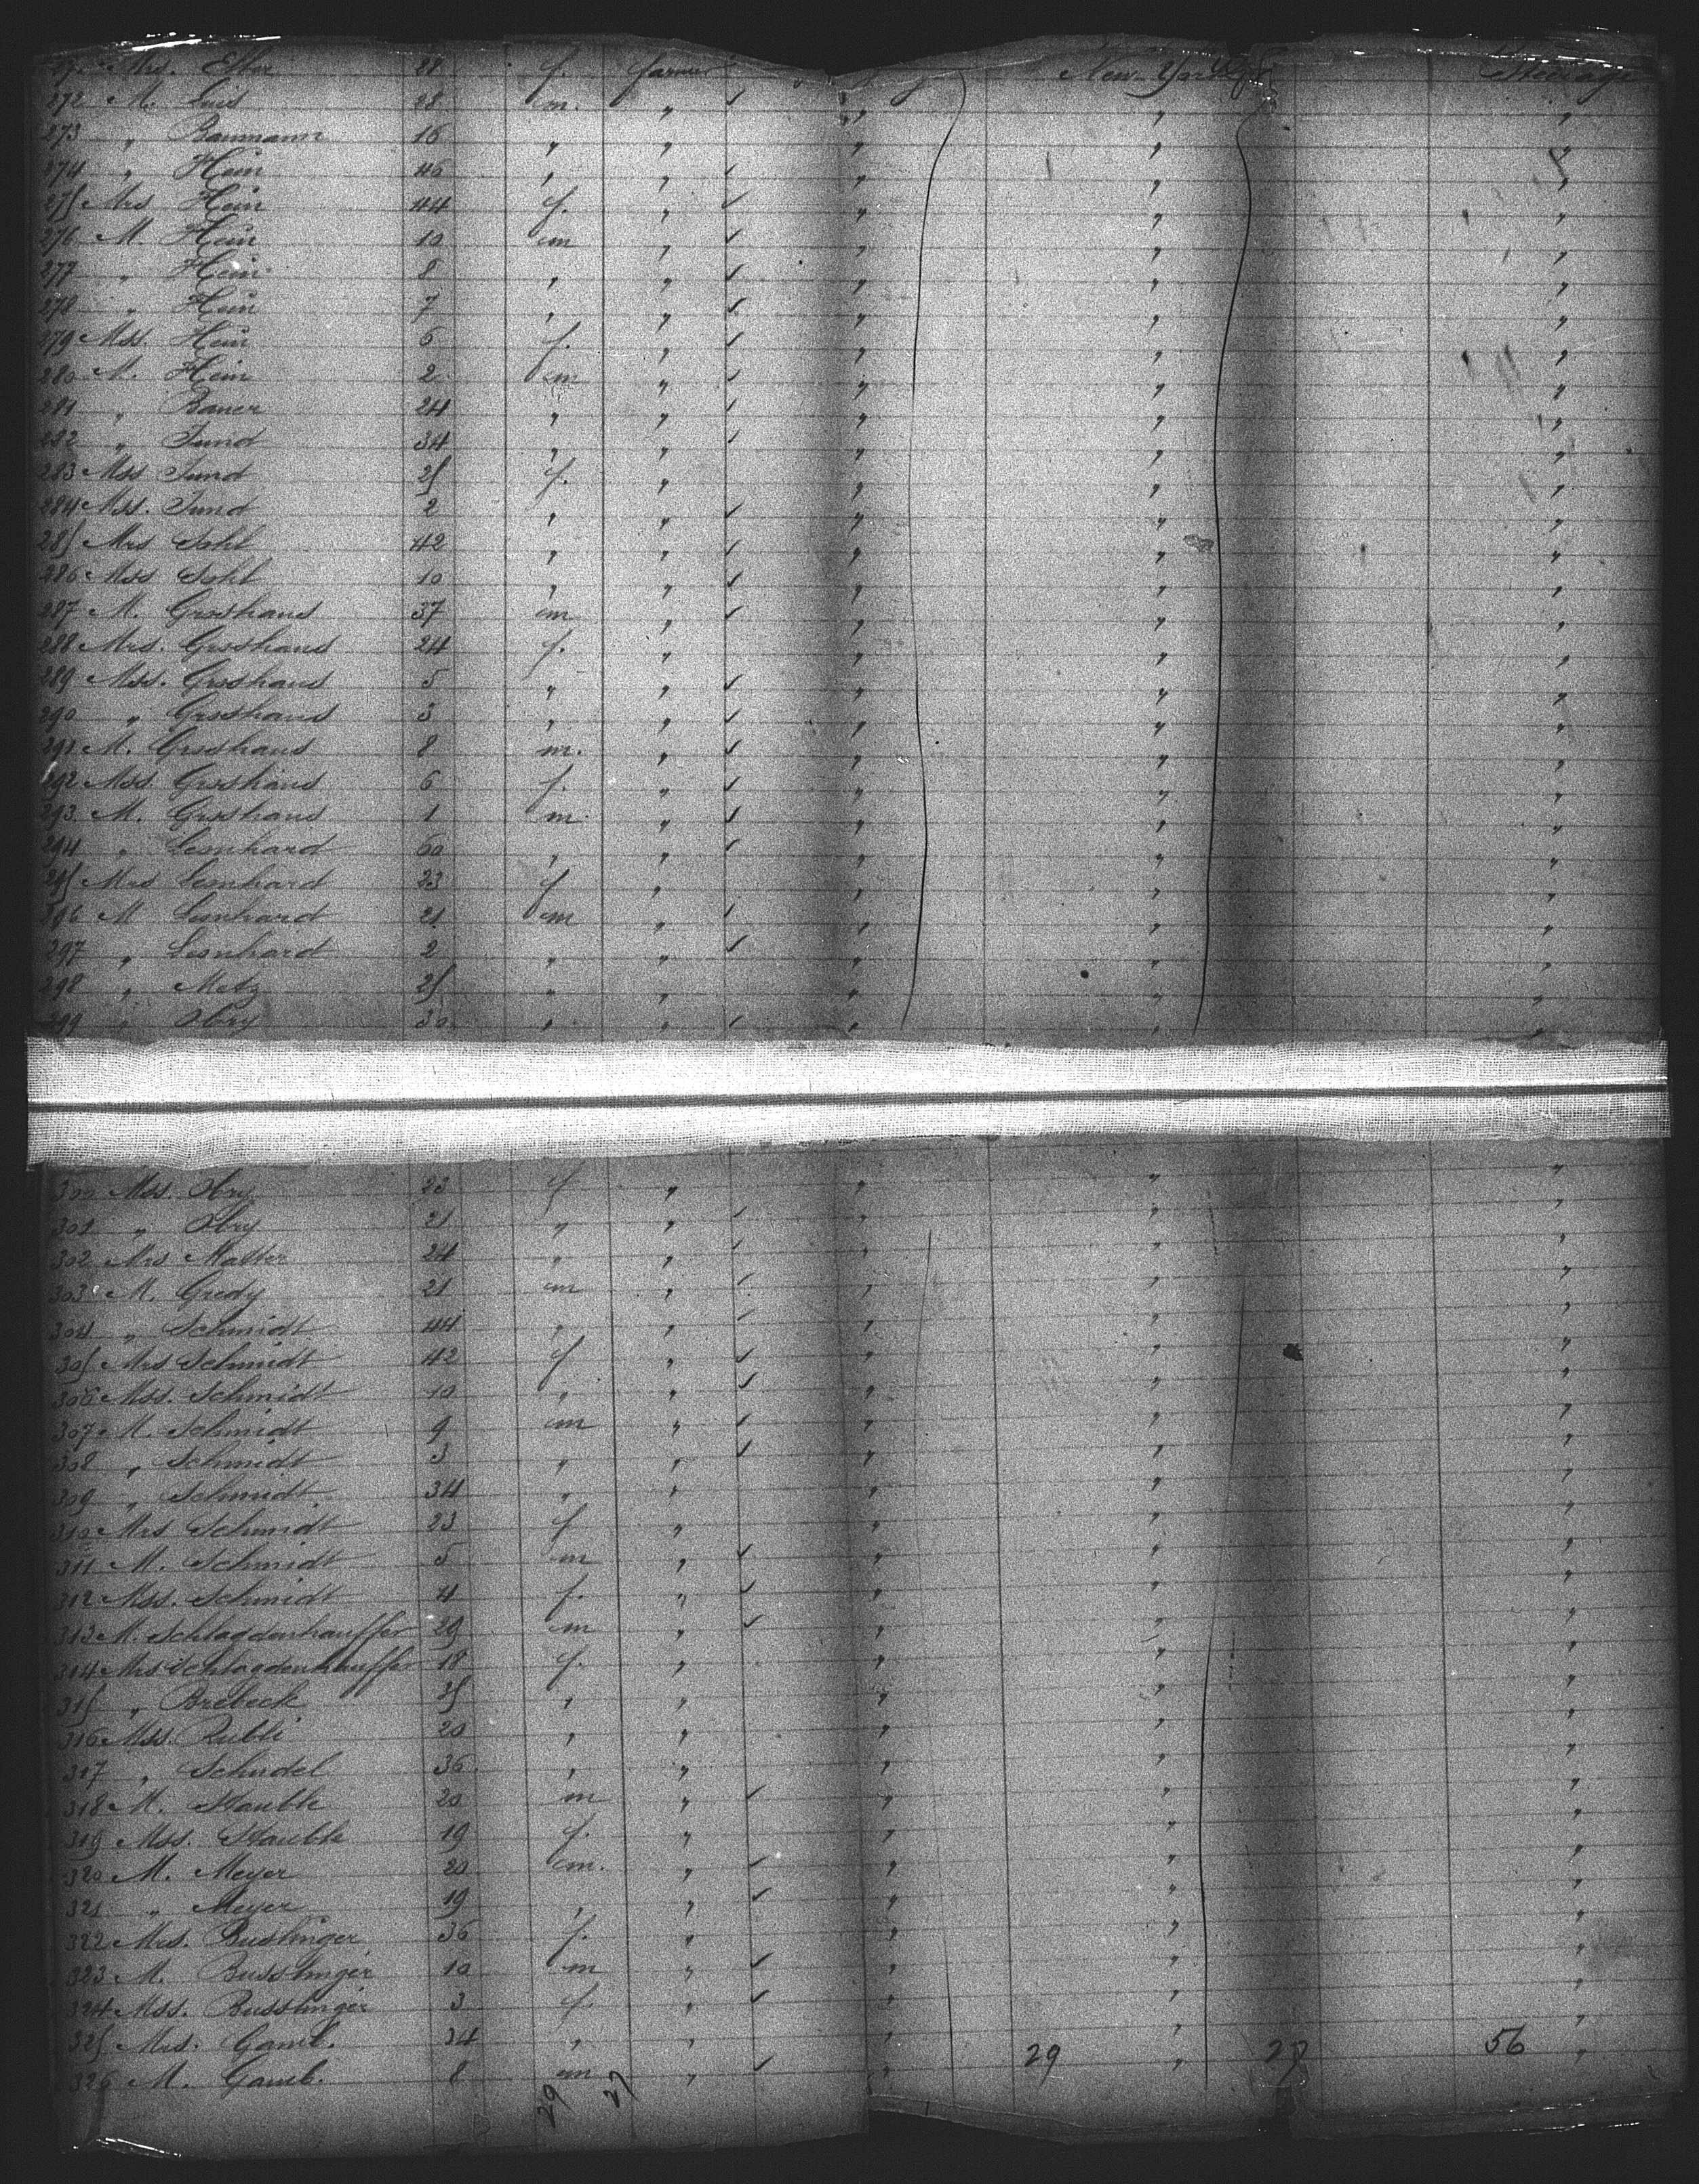 Mrs. 28 f. farmer New York Steerage
272 M. Luis 28 m. " " " "
273 " Baumann 16 " " " " "
274 " Hein 46 " " " " "
275 Mrs Hein 44 f. " " " "
276 M. Hein 10 m " " " "
277 " Hein 8 " " " " "
278 " Hein 7 " " " " "
279 Mss. Hein 6 f. " " " "
280 M. Hein 2 m " " " "
281 " Bauer 24 " " " " "
282 " Jund 34 " " " " "
283 Mss Jund 25 f. " " " "
284 Mss. Jund 2 " " " " "
285 Mrs Sohl 42 " " " " "
286 Mss Sohl 10 " " " " "
287 M. Groshans 37 m " " " "
288 Mrs. Groshans 24 f. " " " "
289 Mss. Groshans 5 " " " " "
290 " Groshans 3 " " " " "
291 M. Groshans 8 m. " " " "
292 Mss Groshans 6 f. " " " "
293 M. Groshans 1 m " " " "
294 " Leonhard 60 " " " " "
295 Mrs Leonhard 23 f " " " "
296 M Leonhard 21 m " " " "
297 " Leonhard 2 " " " " "
298 " Metz 25 " " " " "
299 " Obry 30 " " " " "
300 Mss. Obry 23 f " " " "
301 " Obry 21 " " " " "
302 Mrs Matter 24 " " " " "
303 M. Gredy 21 m " " " "
304 " Schmidt 44 " " " " "
305 Mrs Schmidt 42 f " " " "
306 Mss. Schmidt 10 " " " " "
307 M. Schmidt 9 m " " " "
308 " Schmidt 3 " " " " "
309 " Schmidt 34 " " " " "
310 Mrs Schmidt 23 f " " " "
311 M. Schmidt 5 m " " " "
312 Mss. Schmidt 4 f. " " " "
313 M. Schlagdenhauffer 29 m " " " "
314 Mrs Schlagdenhauffer 18 f. " " " "
315 " Brebeck 35 " " " " "
316 Mss. Rubli 20 " " " " "
317 " Schudel 36 " " " " "
318 M. Stauble 20 m " " " "
319 Mss. Stauble 19 f. " " " "
320 M. Meyer 20 m. " " " "
321 " Meyer 19 " " " " "
322 Mrs. Busslinger 36 f. " " " "
323 M. Busslinger 10 m " " " "
324 Mss. Busslinger 3 f. " " " "
325 Mrs. Gamb. 34 " " " " "
29 27 56
326 M. Gamb. 8 m " " " "
29 27